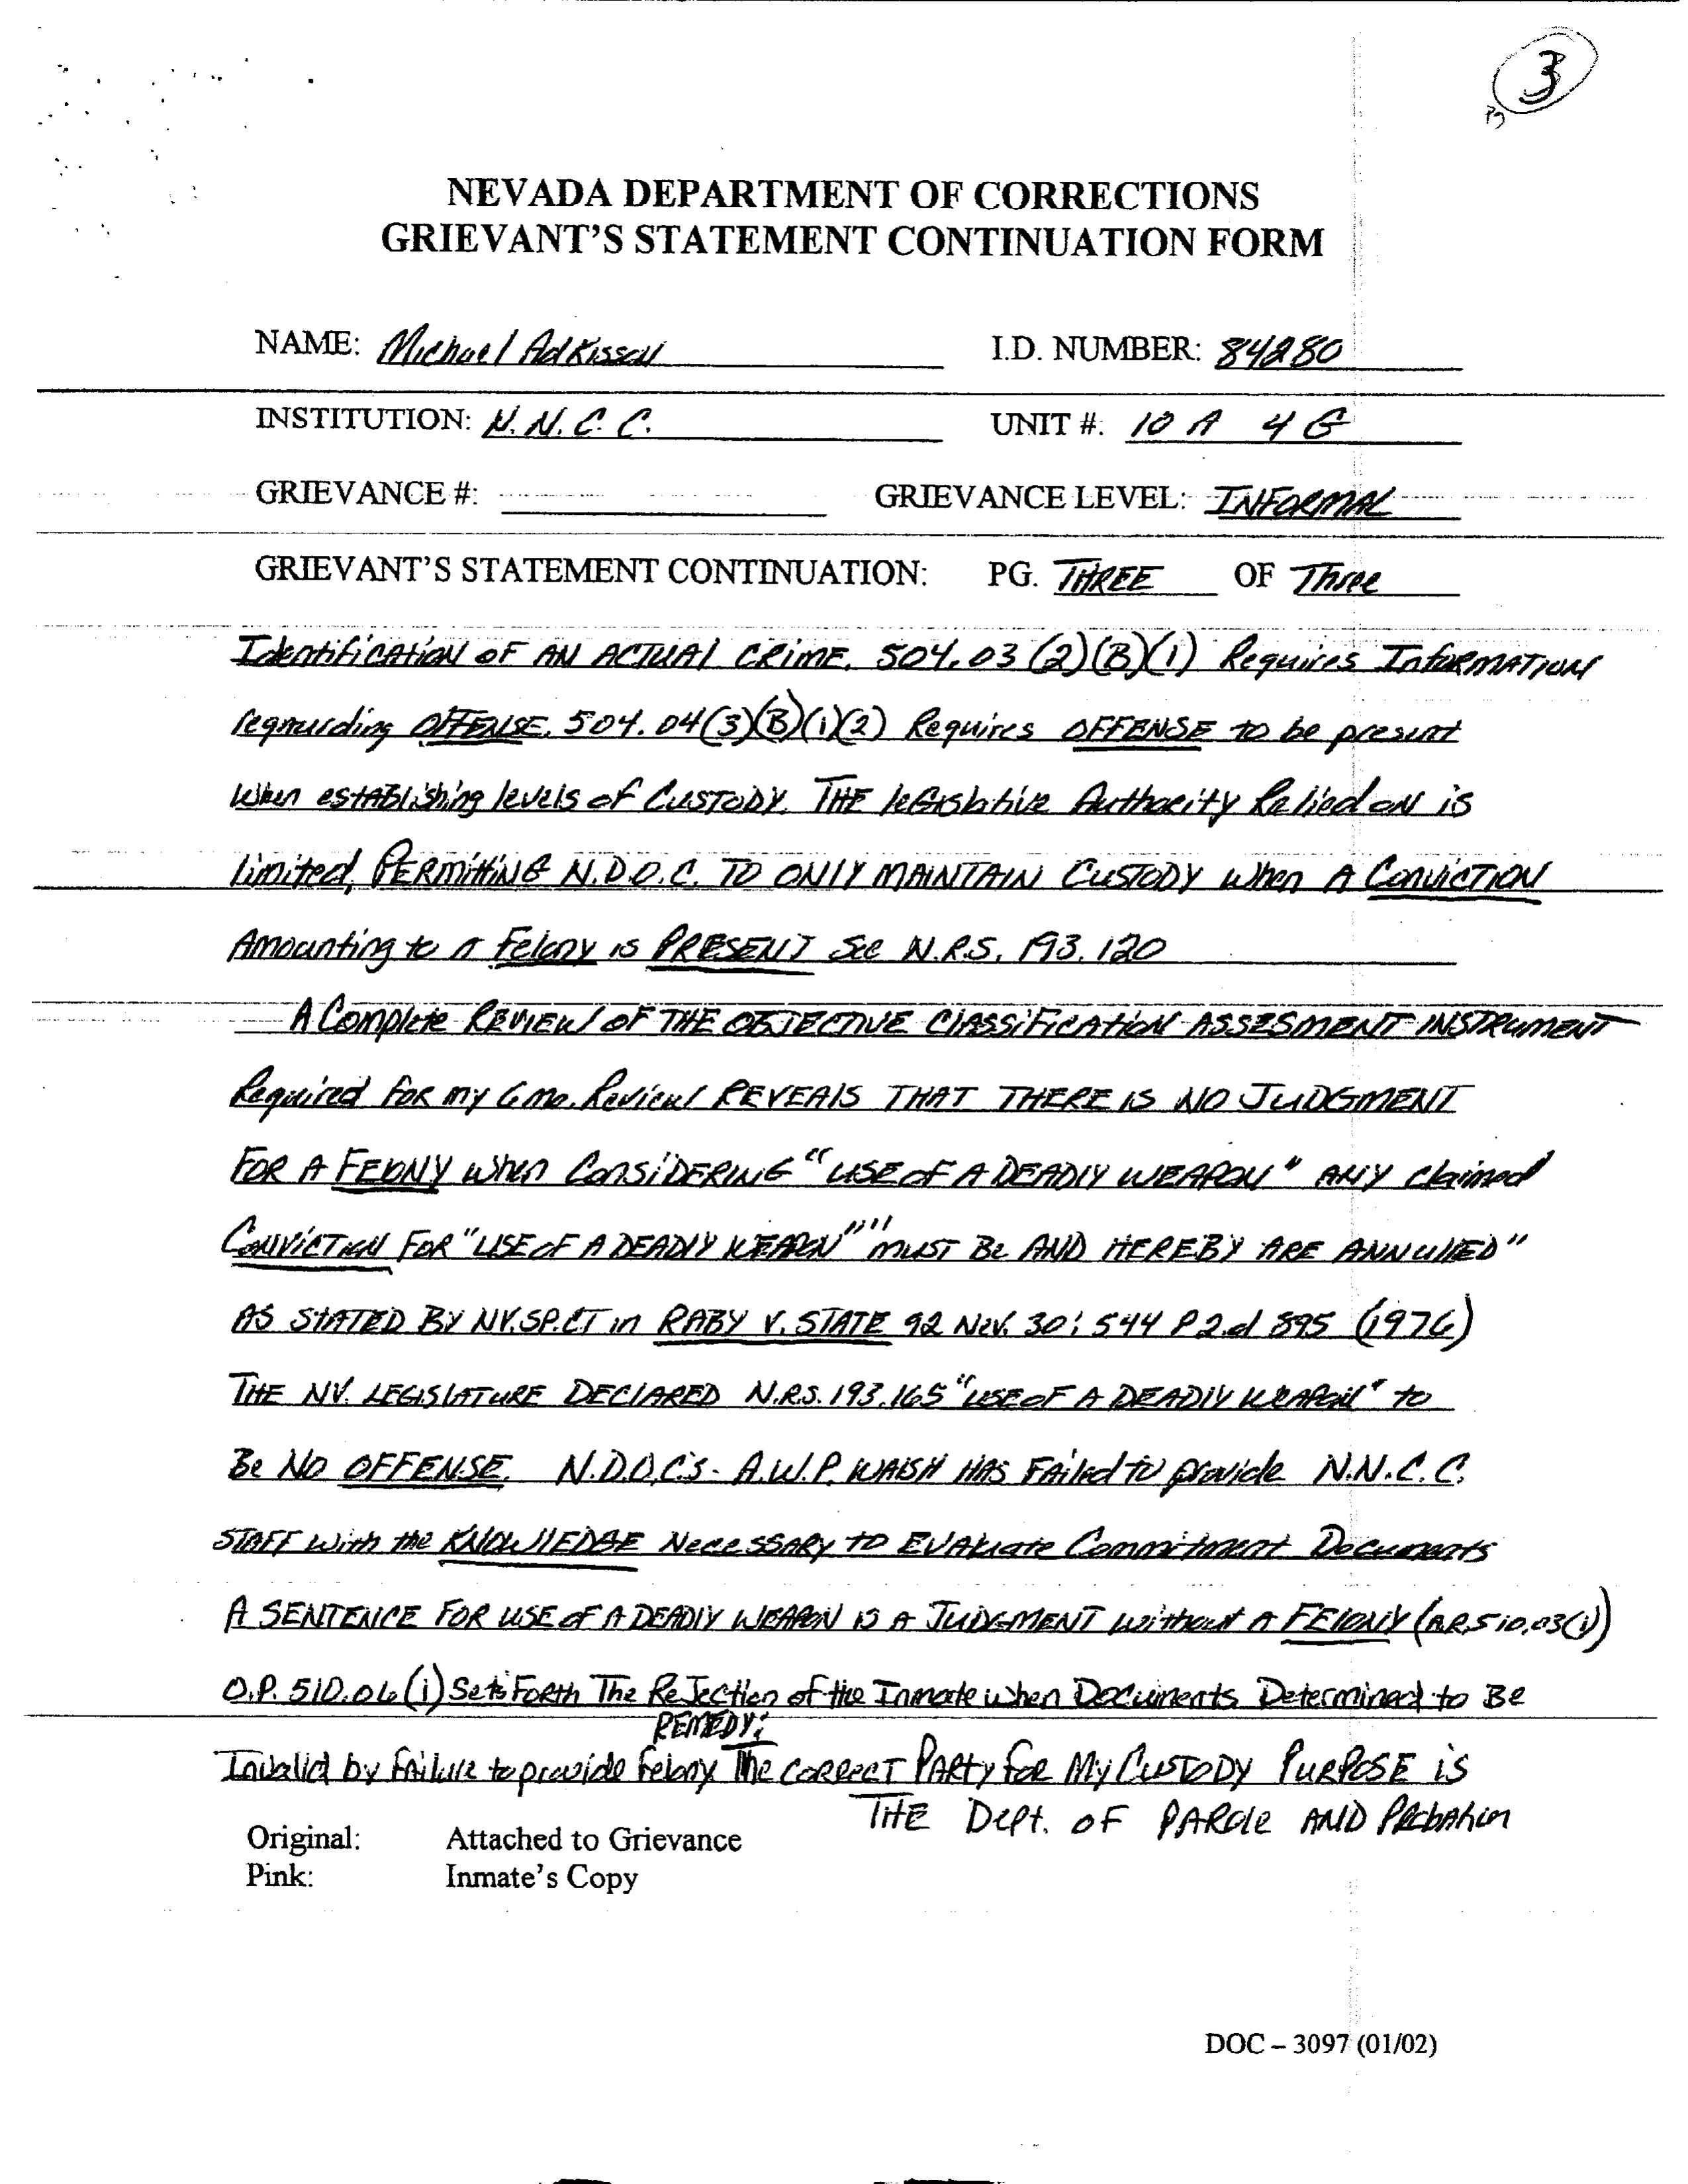 3
Pg
NEVADA DEPARTMENT OF CORRECTIONS
GRIEVANT'S STATEMENT CONTINUATION FORM
NAME: Michael Adkisson I.D. NUMBER: 84280
INSTITUTION: N.N.C.C. UNIT #: 10 A 4 G
GRIEVANCE #: GRIEVANCE LEVEL: INFORMAL
GRIEVANT'S STATEMENT CONTINUATION: PG. THREE OF Three
Identification OF AN ACTUAL CRIME. 504.03 (2)(B)(1) Requires INFORMATION
regaurding OFFENSE. 504.04(3)(B)(1)(2) Requires OFFENSE to be present
when establishing levels of CUSTODY. THE legislative Authority Relied on is
limited, PERMitting N.D.O.C. TO ONLY MAINTAIN CUSTODY when A CONVICTION
Amounting to A Felony is PRESENT See N.R.S. 193.120
A Complete REVIEW OF THE OBJECTIVE CLASSIFICATION ASSESMENT INSTRUMENT
Required for my 6 mo. Review REVEALS THAT THERE IS NO JUDGMENT
FOR A FELONY when CONSIDERING "USE OF A DEADLY WEAPON" ANY claimed
CONVICTION FOR "USE OF A DEADLY WEAPON"" "MUST BE AND HEREBY ARE ANNULLED"
AS STATED BY NV.SP.CT in RABY V. STATE 92 Nev. 30; 544 P2.d 895 (1976)
THE NV. LEGISLATURE DECLARED N.R.S. 193.165 "USE OF A DEADLY WEAPON" to
Be NO OFFENSE. N.D.O.C.'s - A.W.P. WALSH HAS FAiled to provide N.N.C.C.
STAFF with the KNOWLEDGE Necessary TO EVALuate Commitment Documents
A SENTENCE FOR USE OF A DEADLY WEAPON IS A JUDGMENT without A FELONY (A.R. 510.03(1))
O.P. 510.06(1) Sets Forth The ReJection of the Inmate when Documents Determined to Be
REMEDY:
Invalid by failure to provide felony. The CORRECT PARTY for My CUSTODY PURPOSE is
THE Dept. OF PAROLE AND Probation
Original: Attached to Grievance
Pink: Inmate's Copy
DOC – 3097 (01/02)